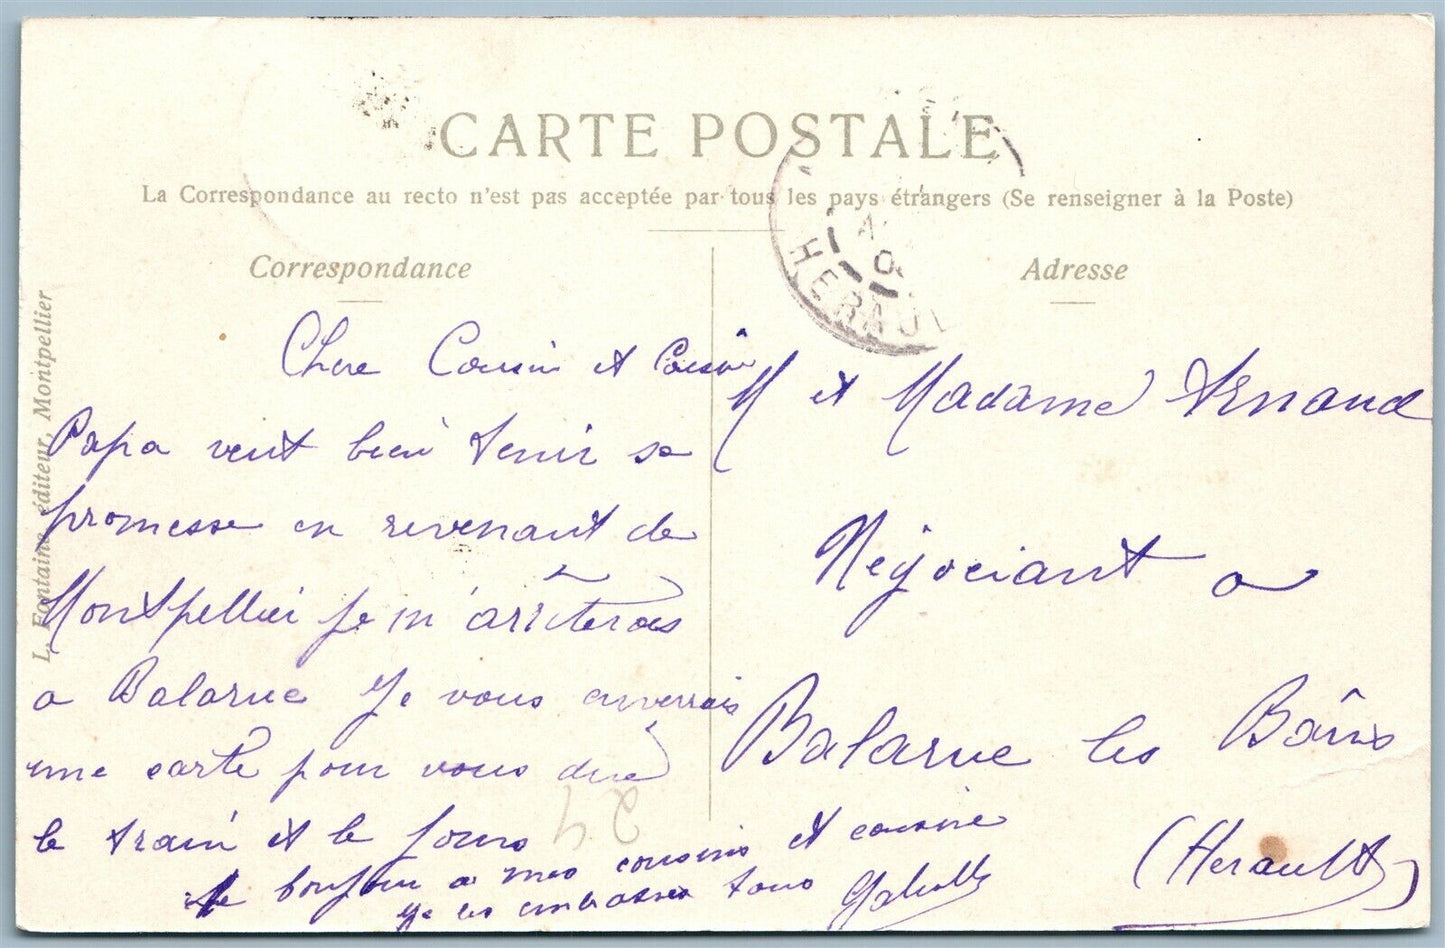 CARTE POSTALE
La Correspondance au recto n'est pas acceptée par tous les pays étrangers (Se renseigner à la Poste)
Correspondance
Adresse
L. Fontaine, éditeur, Montpellier
HERAUL
Chere Cousin et Cousine
Papa veut bien tenir sa
promesse en revenant de
Montpellier je m'arrêterais
a Balaruc Je vous enverrais
une carte pour vous dire
le train et le jours
le bonjour a mes cousins et cousine
Je les embrasses tous
M et Madame Arnaud
Négociant a
Balaruc les Bains
(Herault)
24